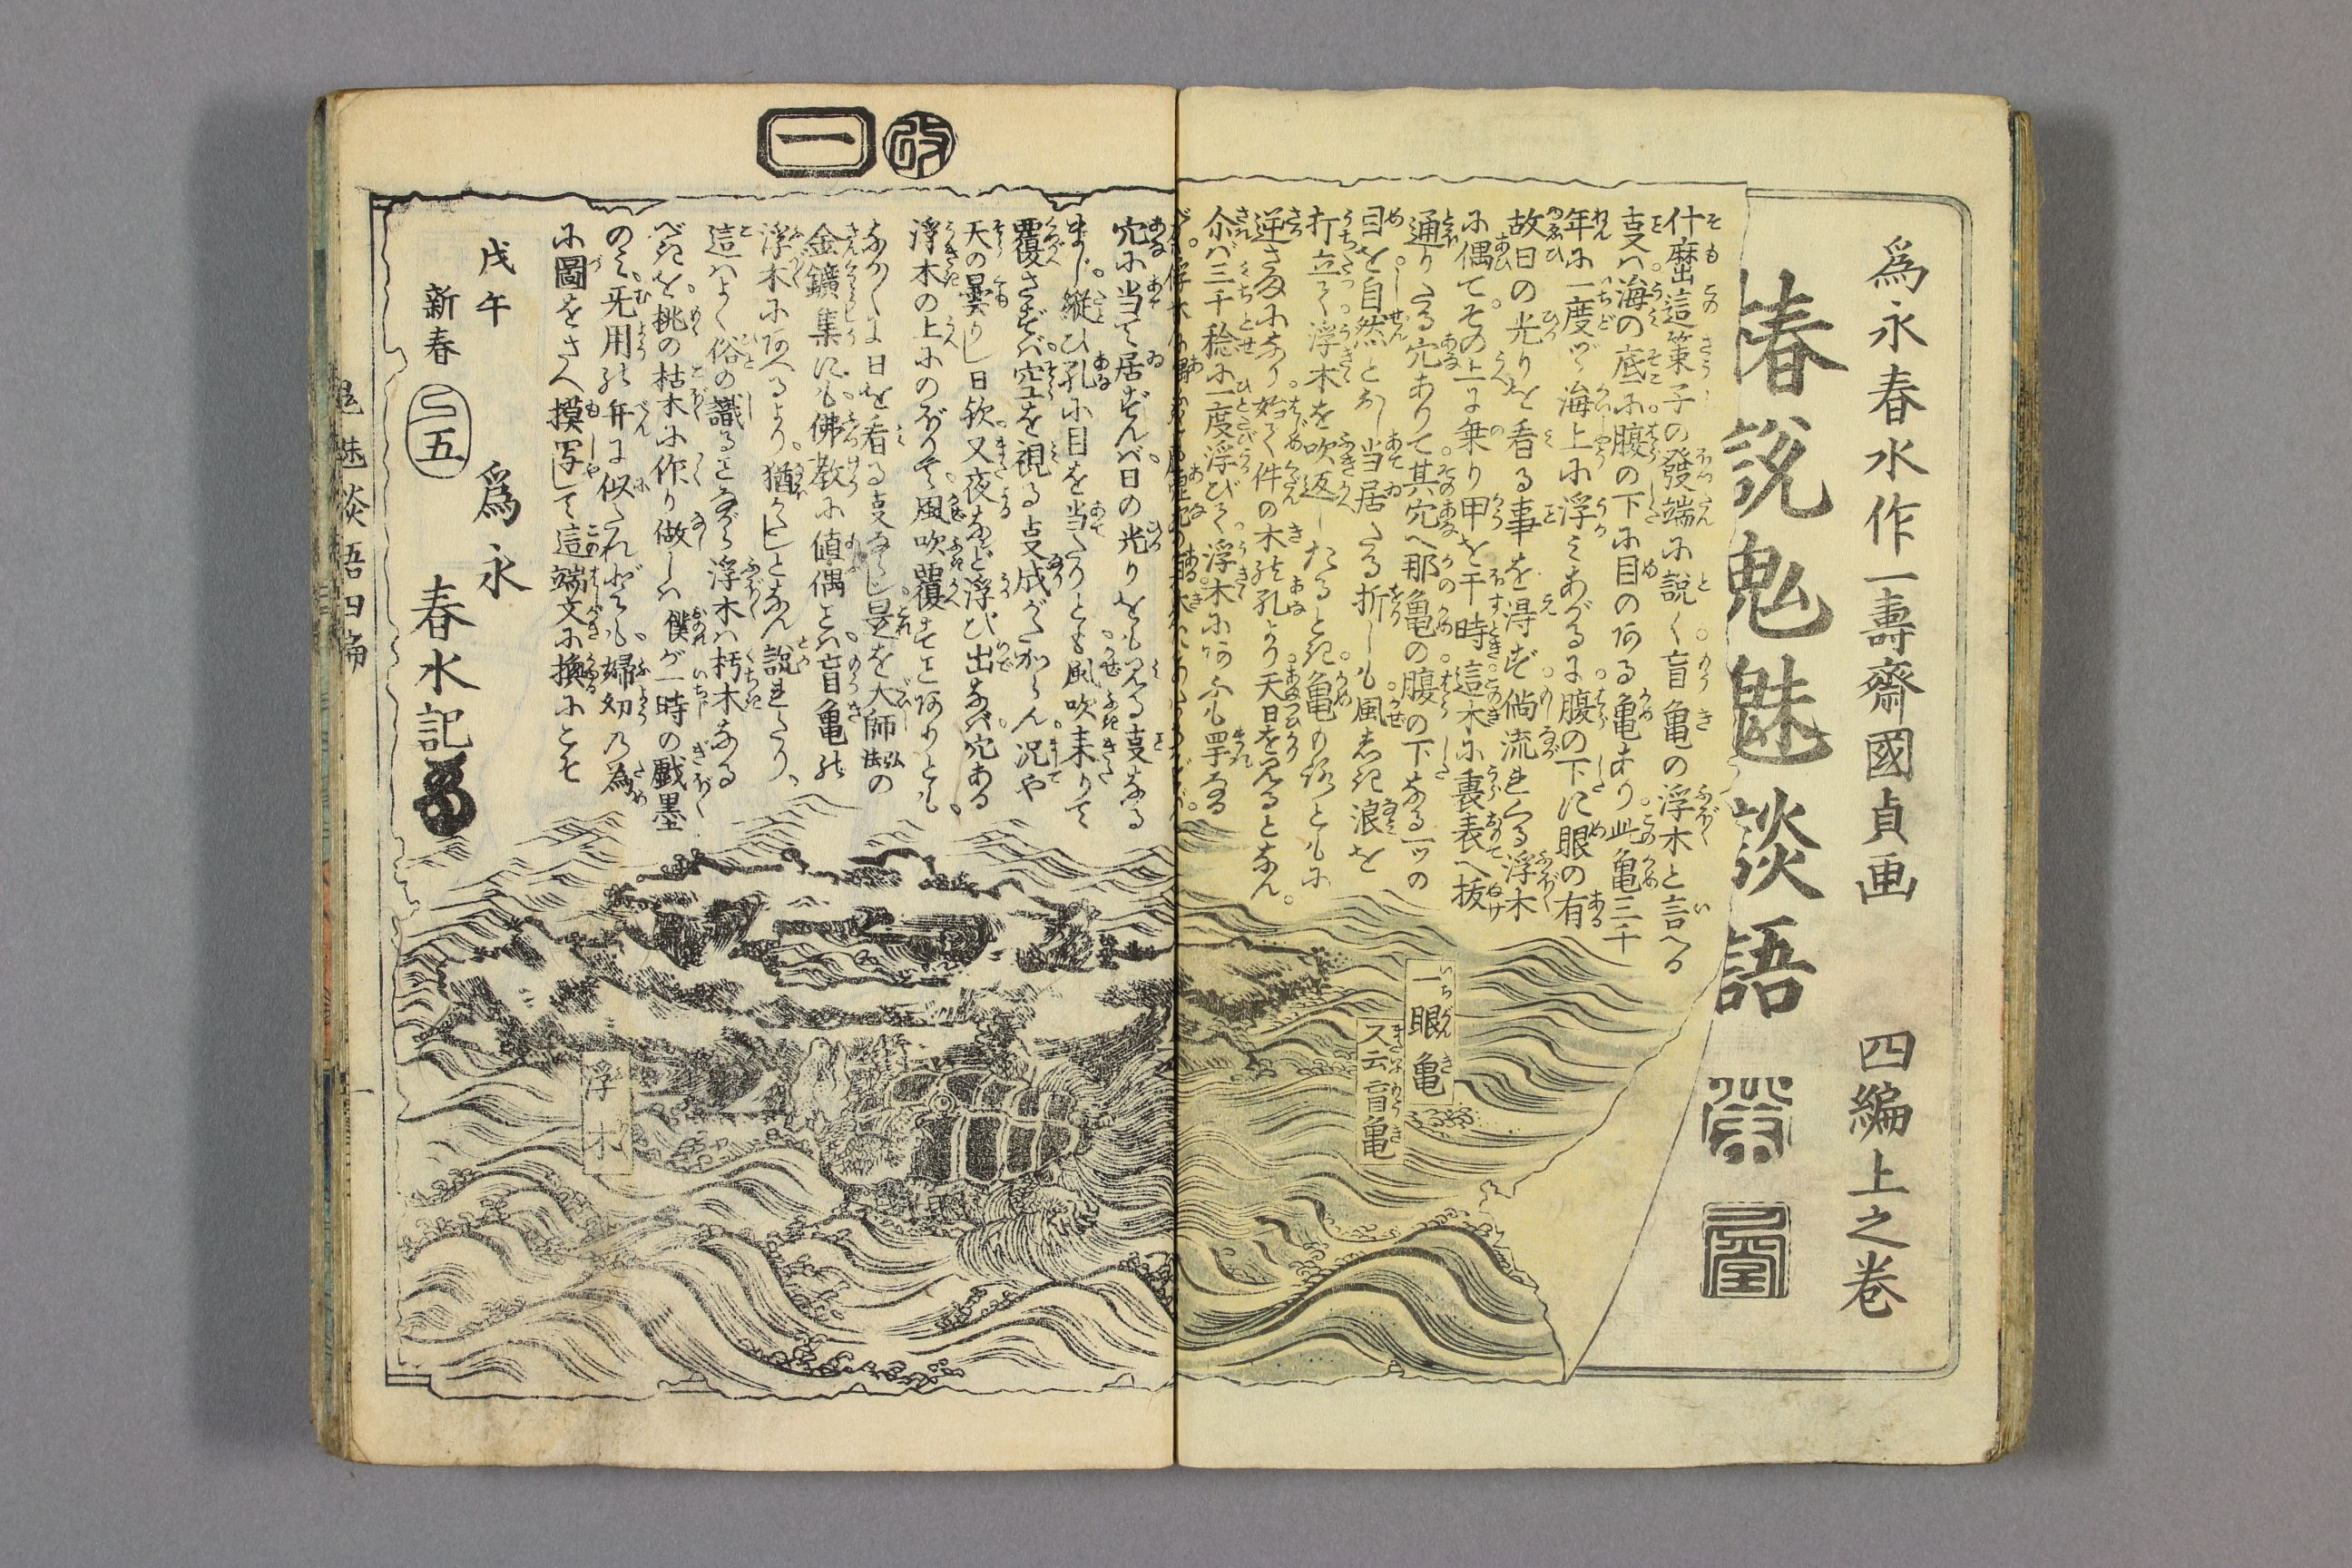 為永春水作一壽齋國貞画　四編上之巻
椿説鬼魅談語
什麽這策子の發端に說く盲亀の浮木と言へる
支ハ海の底に腹の下に目の阿る亀あり此亀三千
年に一度ヅヽ海上に浮みあがるに腹の下に眼の有
故日の光りを看る事を得ず倘流まくる浮木
に偶てその上に乗り甲を干時這木に裏表へ抜
通りたる穴ありて其穴へ那亀の腹の下なる一ツの
目を自然とおし当居たる折しも風あき浪を
打立て浮木を吹返したるとき亀の躰ともに
逆さまになり始て件の木の孔より天日を見るとなん
尒バ三千稔に一度浮びて浮木に阿ふも罕なる
穴に当て居ずんバ日の光りをも見る支なる
まじ縦ひ孔に目を当たりとも風吹来りて
覆さずバ空を視る支成がたからん况や
天の曇りし日欤又夜なと浮び出なバ穴ある
浮木の上にのぼりても風吹覆すこと阿りとも
なかく日を看る支ならじ是を大師弘法の
金鑛集にも佛教に値偶とハ盲亀の
浮木に阿へるより猶かたしとなん說まえたり、
這ハよく俗の識るところながら浮木ハ朽木なる
べきを桃の枯木に作り做しハ僕が一時の戯墨
のミ无用の弁に似たれども婦幼乃為
に圖をさへ摸写して這端文に換にこそ
戊午
新春
為永
春水記
一眼亀
又云盲亀
浮木
改
一
二五
鬼魅談語四編